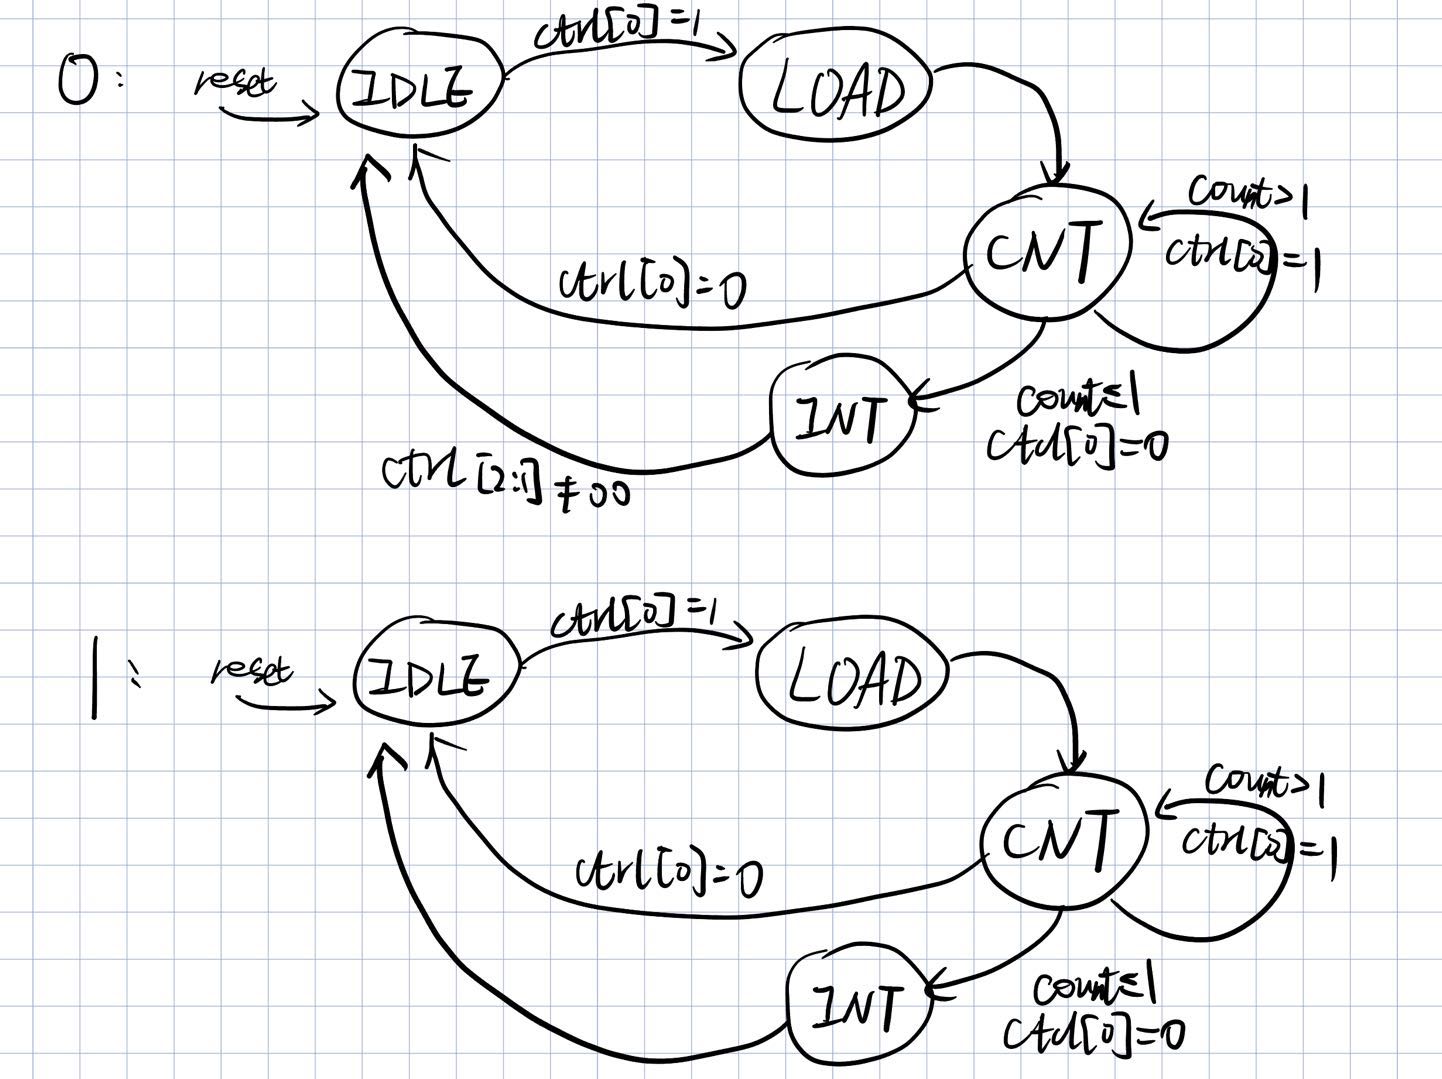 0:
reset
IDLE
ctrl[0]=1
LOAD
count>1
ctrl[0]=1
CNT
ctrl[0]=0
count≤1
ctrl[0]=0
INT
ctrl[2:1]≠00
1:
reset
IDLE
ctrl[0]=1
LOAD
count>1
ctrl[0]=1
CNT
ctrl[0]=0
count≤1
ctrl[0]=0
INT